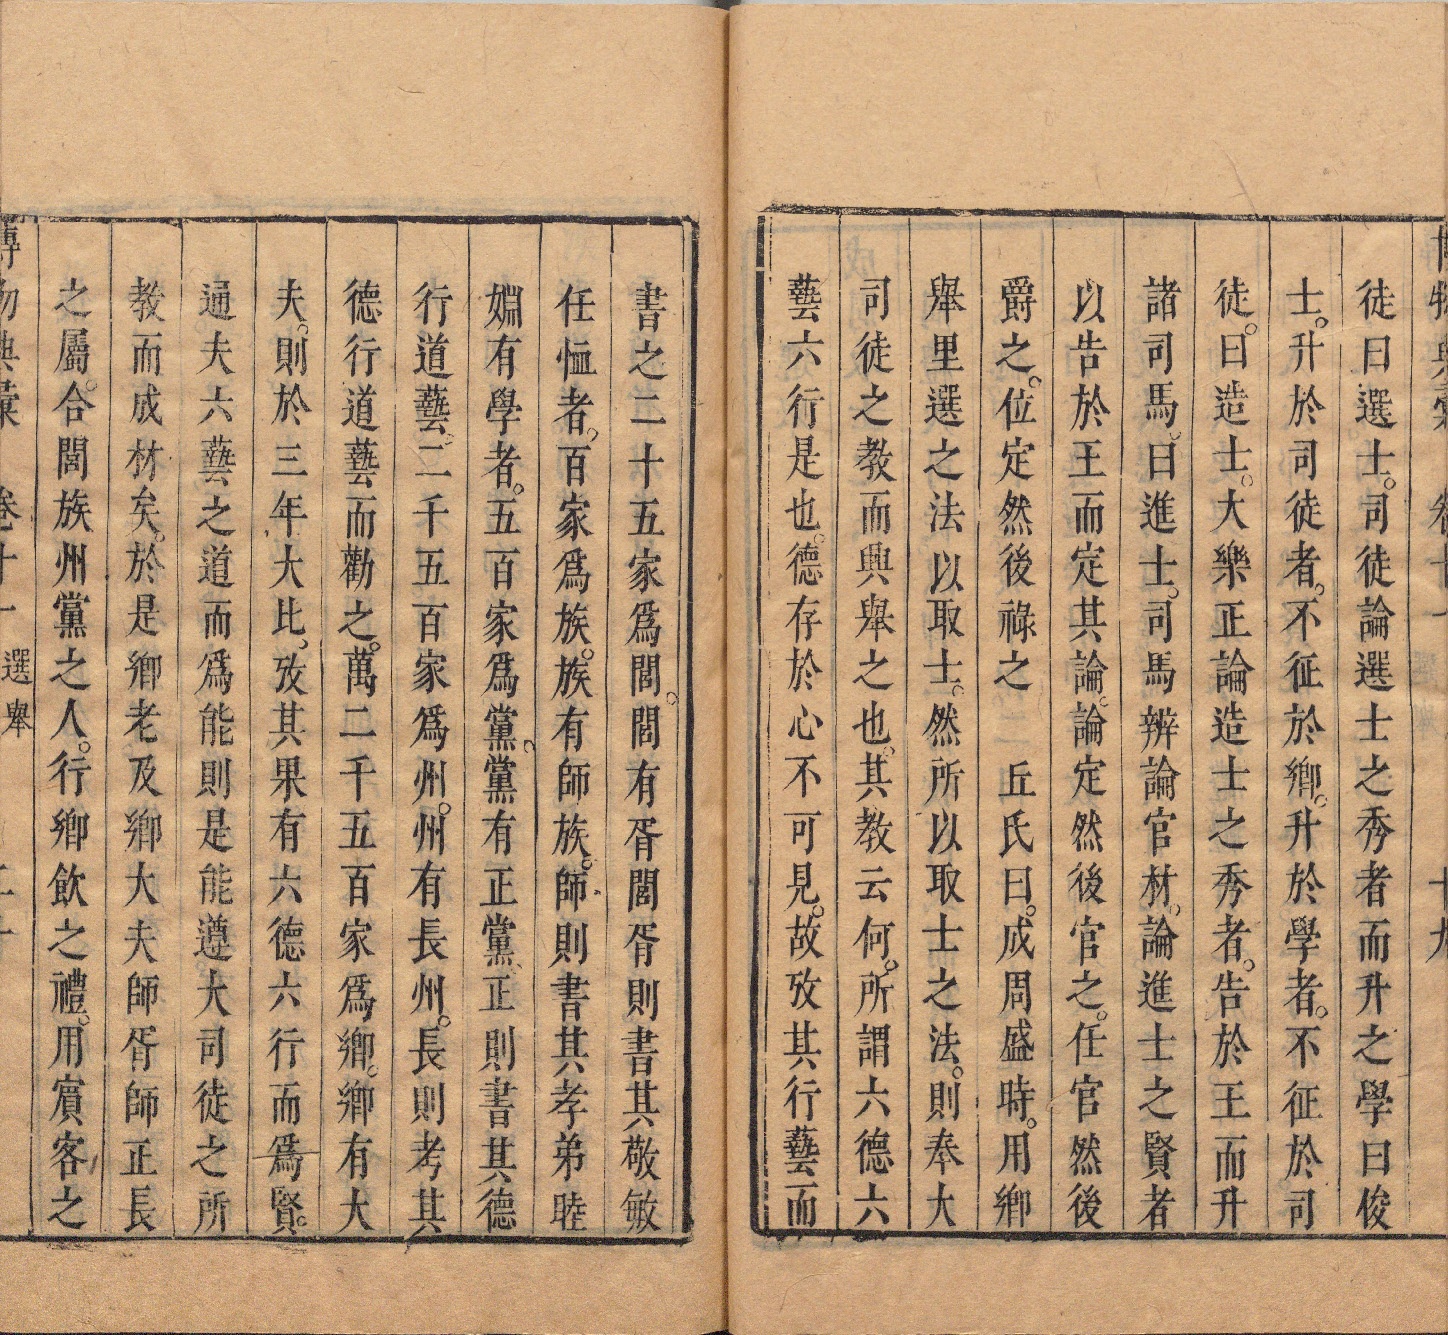 博物典彙 卷十一 十九
徒曰選士。司徒論選士之秀者而升之學曰俊
士。升於司徒者。不征於鄉。升於學者。不征於司
徒。曰造士。大樂正論造士之秀者。告於王而升
諸司馬。曰進士。司馬辨論官材。論進士之賢者
以告於王而定其論。論定然後官之。任官然後
爵之。位定然後祿之 丘氏曰。成周盛時。用鄉
舉里選之法以取士。然所以取士之法。則奉大
司徒之教而興舉之也。其教云何。所謂六德六
藝六行是也。德存於心不可見。故攷其行藝而
書之二十五家爲閭。閭有胥閭胥則書其敬敏
任恤者。百家爲族。族有師族。師則書其孝弟睦
婣有學者。五百家爲黨。黨有正黨、正則書其德
行道藝。二千五百家爲州。州有長州。長則考其
德行道藝而勸之。萬二千五百家爲鄉。鄉有大
夫。則於三年大比、攷其果有六德六行而爲賢。
通夫六藝之道而爲能則是能遵大司徒之所
教而成材矣。於是鄉老及鄉大夫師胥師正長
之屬。合閭族州黨之人。行鄉飲之禮。用賓客之
博物典彙 卷十一 選舉 二十